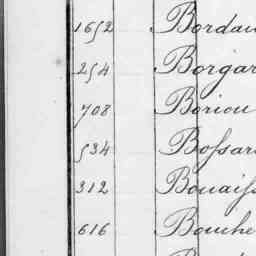 1652 Bordau
254 Borgar
708 Boriou
534 Bossar
312 Bouaiss
616 Bouche